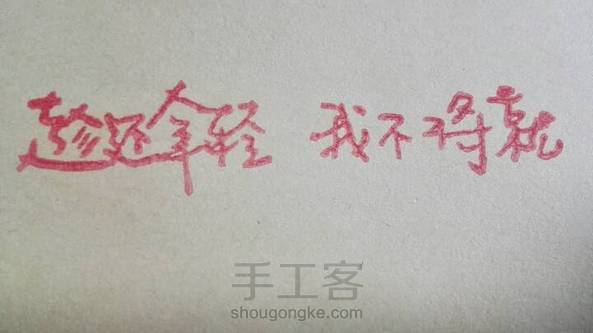 趁还年轻 我不将就
手工客
shougongke.com